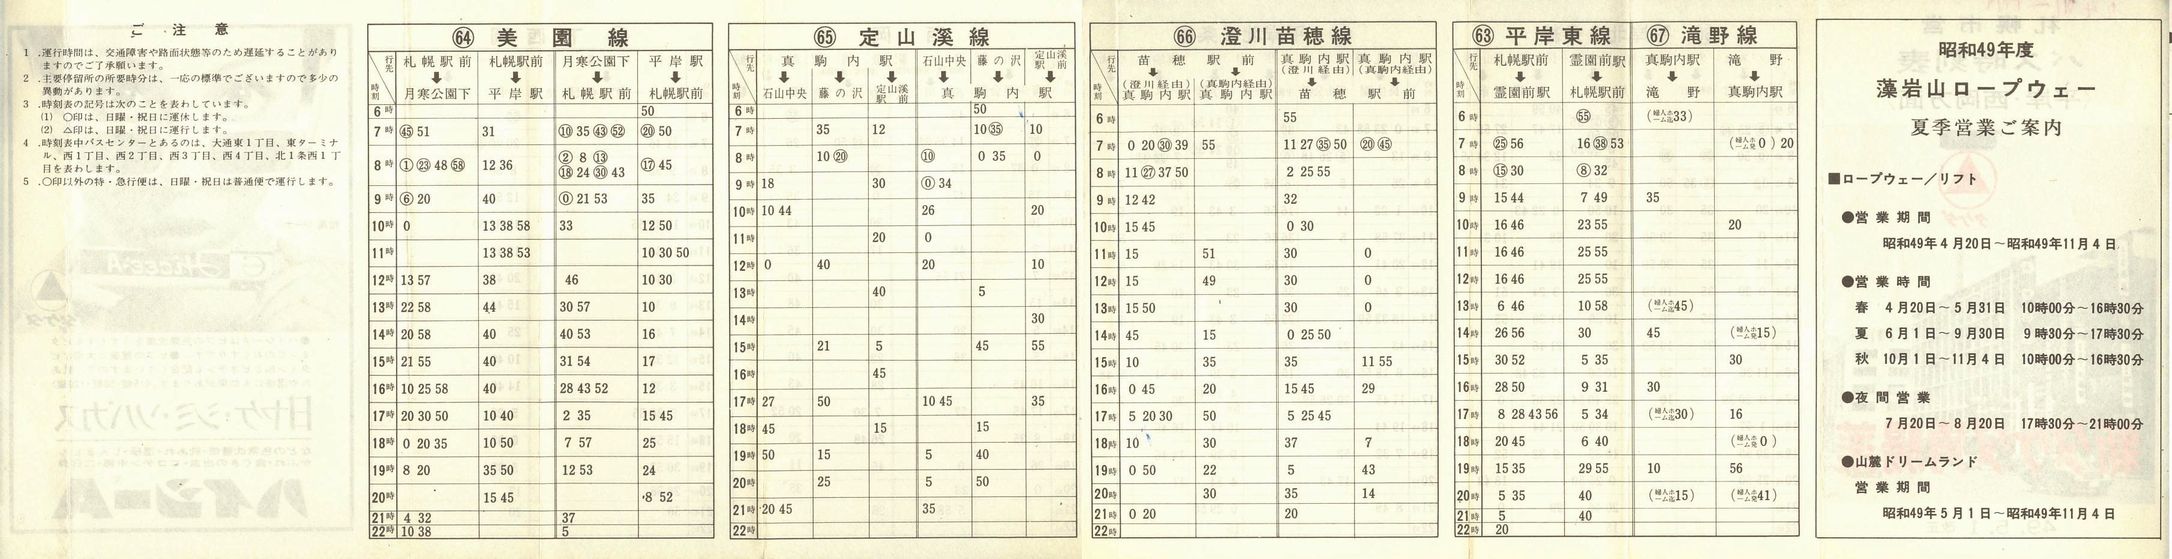 ご注意
1．運行時間は、交通障害や路面状態等のため遅延することがあり
ますのでご了承願います。
2．主要停留所の所要時分は、一応の標準でございますので多少の
異動があります。
3．時刻表の記号は次のことを表わしています。
(1) ○印は、日曜・祝日に運休します。
(2) △印は、日曜・祝日に運行します。
4．時刻表中バスセンターとあるのは、大通東1丁目、東ターミナ
ル、西1丁目、西2丁目、西3丁目、西4丁目、北1条西1丁
目を表わします。
5．○印以外の特・急行便は、日曜・祝日は普通便で運行します。
㉞ 美園線
行先 札幌駅前➡月寒公園下 札幌駅前➡平岸駅 月寒公園下➡札幌駅前 平岸駅➡札幌駅前
時刻
6時 50
7時 ㊺51 31 ⑩35㊸52 ⑳50
8時 ①㉓48 58 12 36 ②8⑬ ⑰45
⑱24㉚43
9時 ⑥20 40 ⓪21 53 35
10時 0 13 38 58 33 12 50
11時 13 38 53 10 30 50
12時 13 57 38 46 10 30
13時 22 58 44 30 57 10
14時 20 58 40 40 53 16
15時 21 55 40 31 54 17
16時 10 25 58 40 28 43 52 12
17時 20 30 50 10 40 2 35 15 45
18時 0 20 35 10 50 7 57 25
19時 8 20 35 50 12 53 24
20時 15 45 8 52
21時 4 32 37
22時 10 38 5
65 定山溪線
行先 真駒内駅➡石山中央 藤の沢 定山溪駅前 石山中央 藤の沢 定山溪駅前➡真駒内駅
時刻
6時 50
7時 35 12 10㉟ 10
8時 10⑳ ⑩ 0 35 0
9時 18 30 ⓪34
10時 10 44 26 20
11時 20 0
12時 0 40 20 10
13時 40 5
14時 30
15時 21 5 45 55
16時 45
17時 27 50 10 45 35
18時 45 15 15
19時 50 15 5 40
20時 25 5 50
21時 20 45 35
22時
66 澄川苗穂線
行先 苗穂駅前➡(澄川経由)真駒内駅 (真駒内経由)真駒内駅 真駒内駅(澄川経由) 真駒内駅(真駒内経由)➡苗穂駅前
時刻
6時 55
7時 0 20㉚39 55 11 27㉟50 ⑳㊺
8時 11㉗37 50 2 25 55
9時 12 42 32
10時 15 45 0 30
11時 15 51 30 0
12時 15 49 30 0
13時 15 50 30 0
14時 45 15 0 25 50
15時 10 35 35 11 55
16時 0 45 20 15 45 29
17時 5 20 30 50 5 25 45
18時 10 30 37 7
19時 0 50 22 5 43
20時 30 35 14
21時 0 20 20
22時
63 平岸東線 67 滝野線
行先 札幌駅前➡霊園前駅 霊園前駅➡札幌駅前 真駒内駅➡滝野 滝野➡真駒内駅
時刻
6時 55 (婦人ホーム迄33)
7時 ㉕56 16㊳53 (婦人ホーム発0) 20
8時 ⑮30 ⑧32
9時 15 44 7 49 35
10時 16 46 23 55 20
11時 16 46 25 55
12時 16 46 25 55
13時 6 46 10 58 (婦人ホーム迄45)
14時 26 56 30 45 (婦人ホーム発15)
15時 30 52 5 35 30
16時 28 50 9 31 30
17時 8 28 43 56 5 34 (婦人ホーム迄30) 16
18時 20 45 6 40 (婦人ホーム発0)
19時 15 35 29 55 10 56
20時 5 35 40 (婦人ホーム迄15) (婦人ホーム発41)
21時 5 40
22時 20
昭和49年度
藻岩山ロープウェー
夏季営業ご案内
■ロープウェー／リフト
●営業期間
昭和49年4月20日～昭和49年11月4日
●営業時間
春 4月20日～5月31日 10時00分～16時30分
夏 6月1日～9月30日 9時30分～17時30分
秋 10月1日～11月4日 10時00分～16時30分
●夜間営業
7月20日～8月20日 17時30分～21時00分
●山麓ドリームランド
営業期間
昭和49年5月1日～昭和49年11月4日